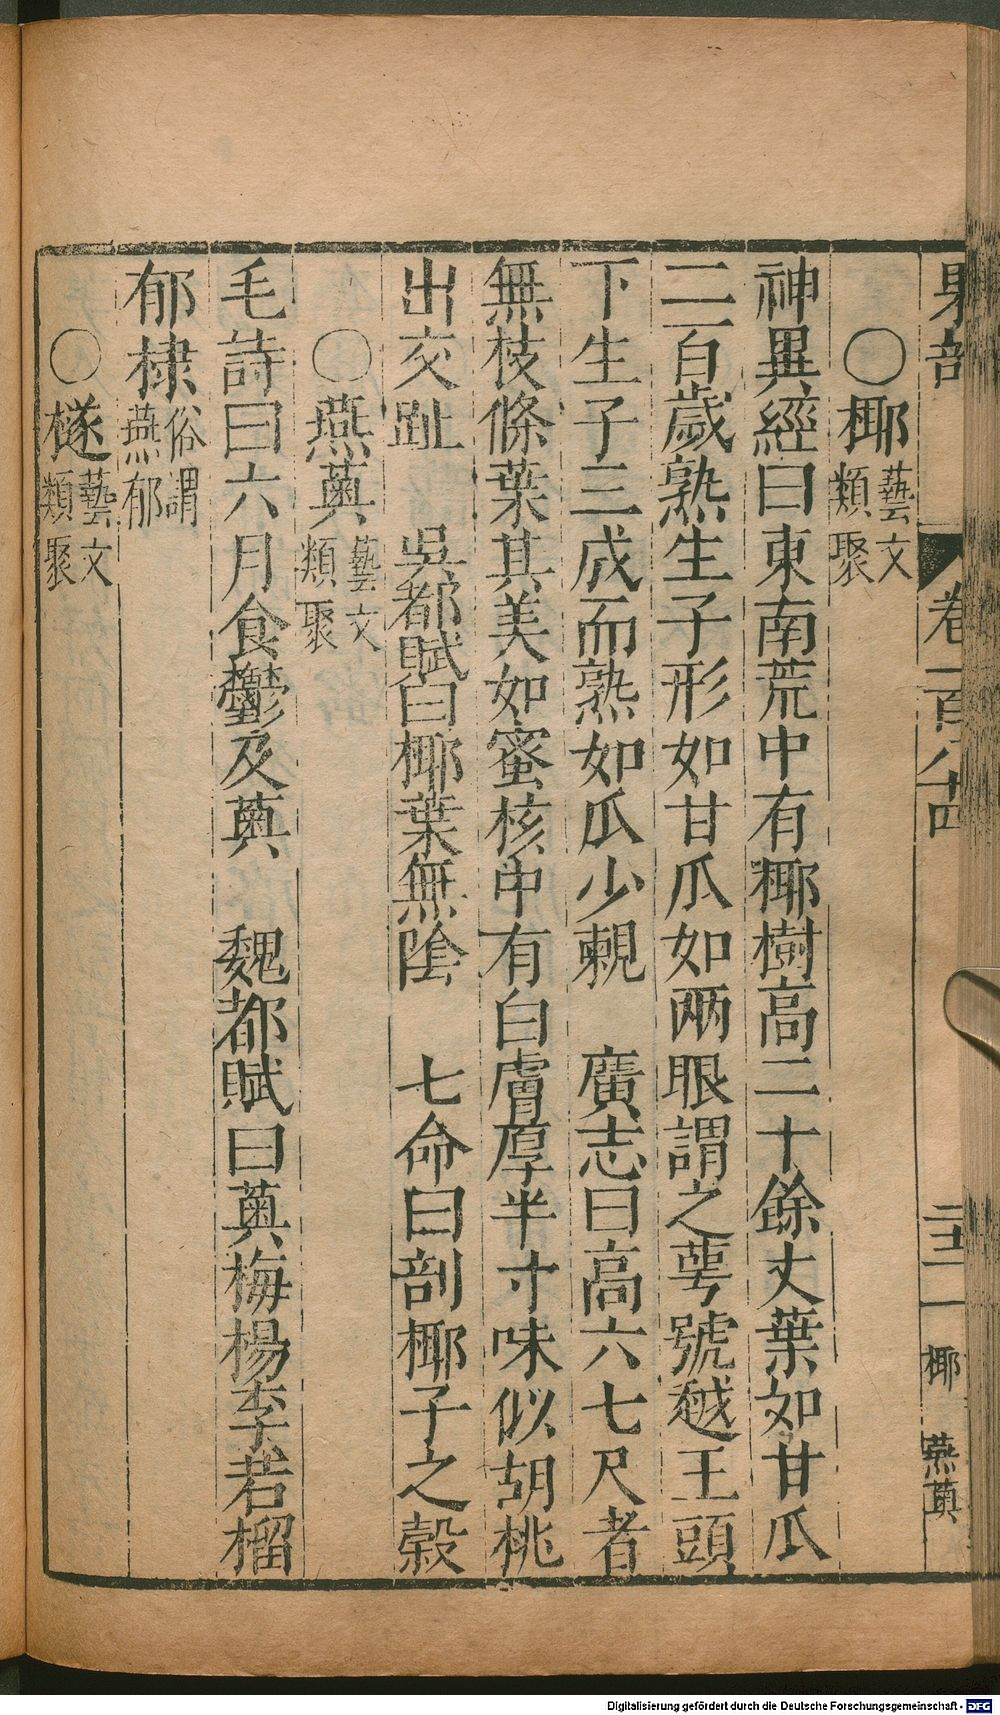 果部 卷一百八十四 二十二 椰 燕薁
〇椰藝文類聚
神異經曰東南荒中有椰樹高二十餘丈葉如甘瓜
二百歲熟生子形如甘瓜如兩眼謂之蕚號越王頭
下生子三歲而熟如瓜少覩 廣志曰高六七尺者
無枝條葉其美如蜜核中有白膚厚半寸味似胡桃
出交趾 吳都賦曰椰葉無陰 七命曰剖椰子之榖
〇燕薁藝文類聚
毛詩曰六月食鬱及薁 魏都賦曰薁梅楊李若榴
郁棣俗謂燕郁
〇檖藝文類聚
Digitalisierung gefördert durch die Deutsche Forschungsgemeinschaft - DFG